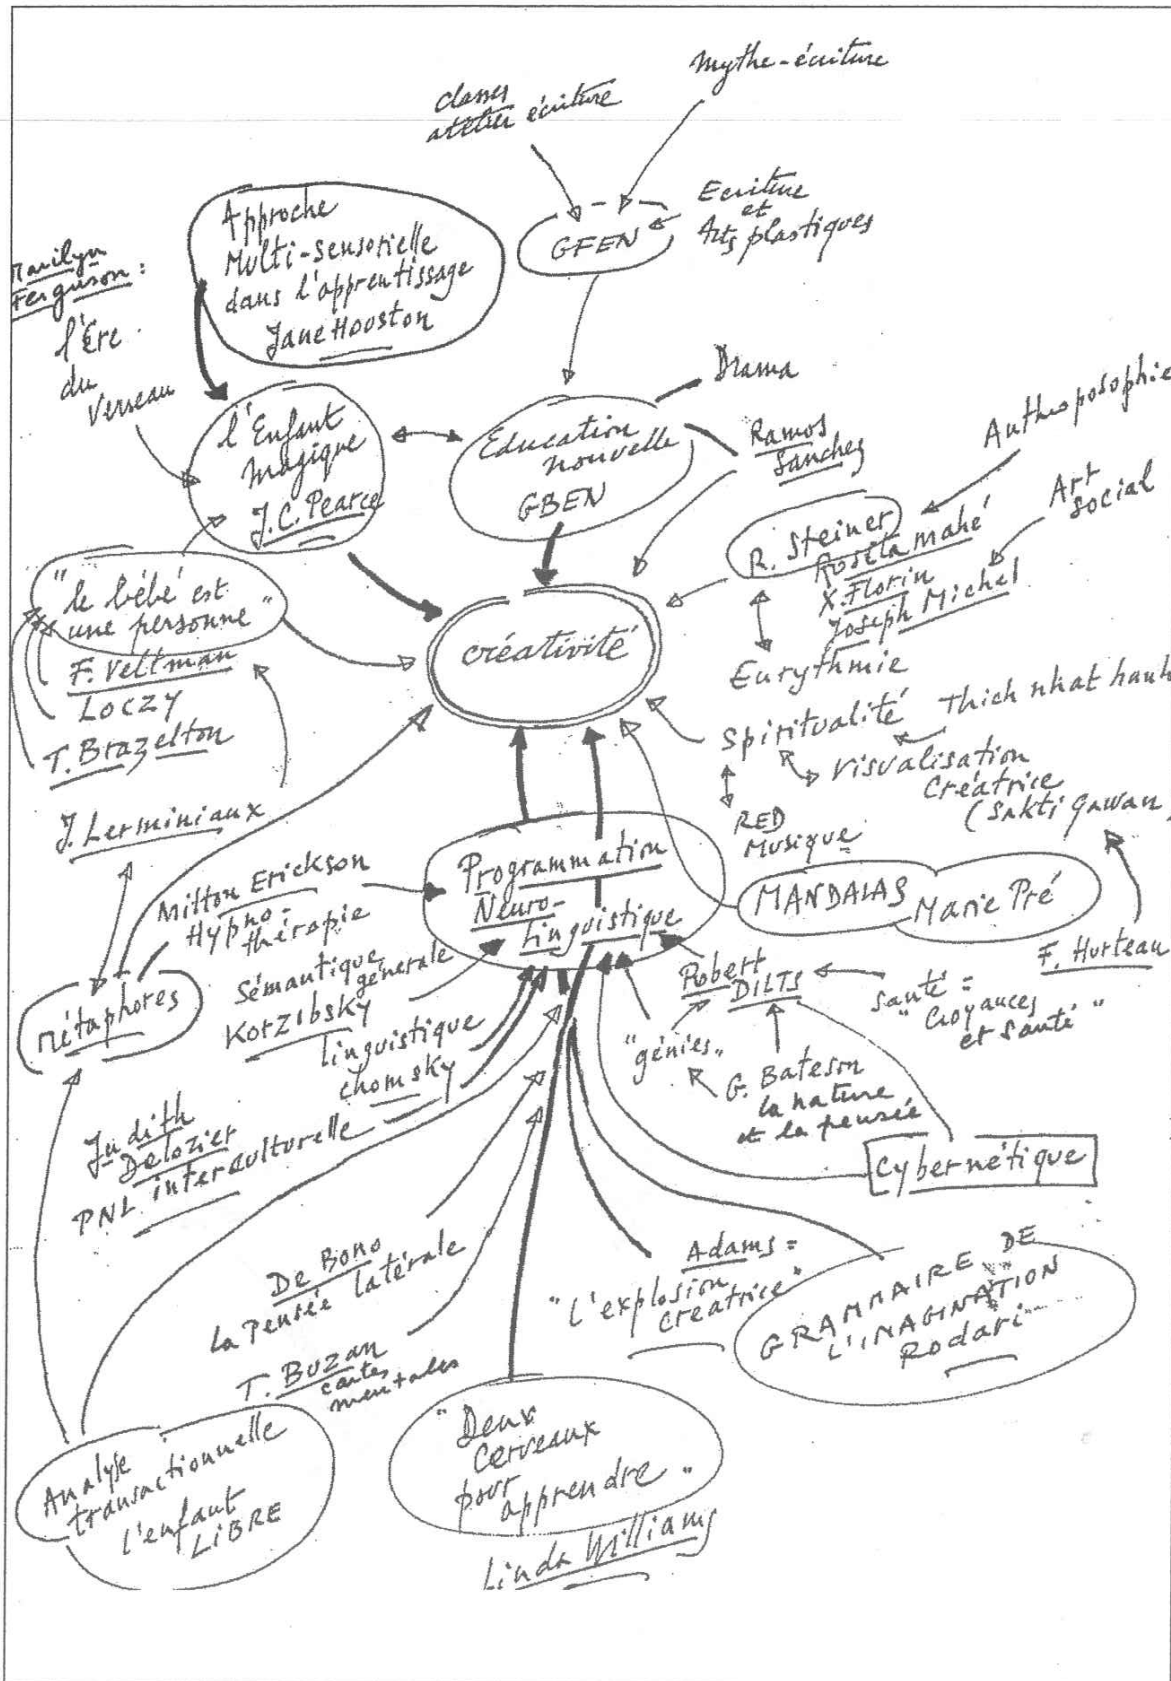 mythe-écriture
classes
atelier écriture
Ecriture
et
Arts plastiques
GFEN
Approche
Multi-sensorielle
dans l'apprentissage
Jane Hooston
Marilyn
Ferguson :
l'Ère
du
Verseau
Drama
l'Enfant
magique
J.C. Pearce
Education
nouvelle
GBEN
Ramos
Sanchez
Anthroposophie
Art
Social
R. Steiner
Rosita mahé
X. Florin
Joseph Michel
Eurythmie
"le bébé est
une personne"
F. Veltman
LOCZY
T. Brazelton
créativité
Spiritualité
Thich nhat hanh
Visualisation
Créatrice
(Sakti gawan)
RED
Musique
J. Lerminiaux
Milton Erickson
Hypno-
thérapie
Programmation
Neuro-
linguistique
MANDALAS
Marie Pré
F. Hurteau
Métaphores
Sémantique
générale
Korzibsky
linguistique
chomsky
Robert
DILTS
Santé =
"Croyances
et santé"
"génies"
G. Bateson
la nature
et la pensée
Judith
Delozier
PNL interculturelle
Cybernétique
De Bono
la Pensée latérale
Adams =
"l'explosion
créatrice"
GRAMMAIRE DE
L'IMAGINATION
Rodari
T. Buzan
cartes
mentales
Analyse
transactionnelle
l'enfant
LIBRE
"Deux
Cerveaux
pour
apprendre"
Linda Williams